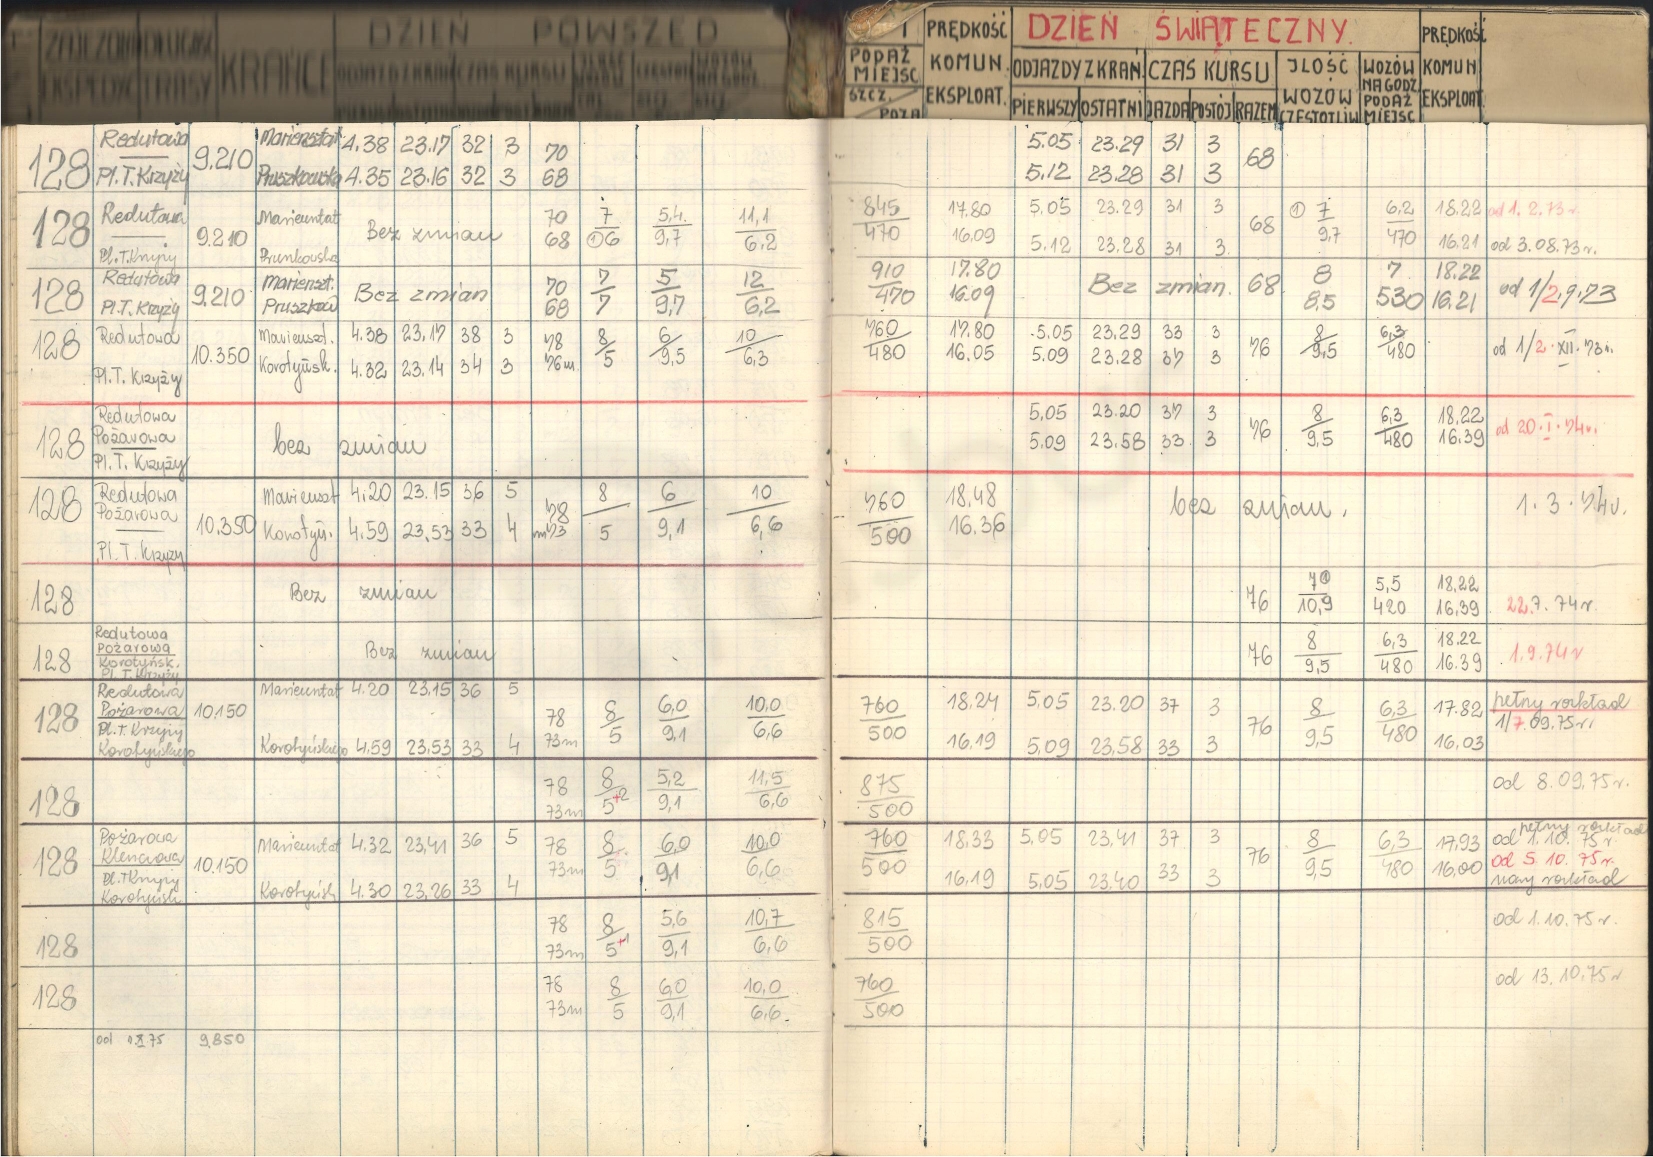 DZIEŃ POWSZED
KRAŃCE
PODAŻ MIEJSC
SZCZ.
POZA
PRĘDKOŚĆ KOMUN. EKSPLOAT.
DZIEŃ ŚWIĄTECZNY.
ODJAZDY Z KRAŃ. CZAS KURSU
PIERWSZY OSTATNI JAZDA POSTÓJ RAZEM
JLOŚĆ WOZÓW
WOZÓW NA GODZ. PODAŻ MIEJSC
PRĘDKOŚĆ KOMUN EKSPLOAT.
128 Redutowa Pl. T. Krzyży 9.210
Mariensztat 4.38 23.17 32 3 70
Pruszkowska 4.35 23.16 32 3 68
5.05 23.29 31 3 68
5.12 23.28 31 3
128 Redutowa Pl. T. Krzyży 9.210
Mariensztat Pruszkowska Bez zmian
70 7 5,4 11,1
68 ①6 9,7 6,2
845 17.80 5.05 23.29 31 3 68 ① 7 6,2 18.22 od 1.2.73 r.
470 16.09 5.12 23.28 31 3 9,7 470 16.21 od 3.08.73 r.
128 Redutowa Pl. T. Krzyży 9.210
Marienszt. Pruszkow Bez zmian
70 7 5 12
68 7 9,7 6,2
910 17.80 Bez zmian. 68 8 7 18.22 od 1/2.9.73
470 16.09 8,5 530 16.21
128 Redutowa Pl. T. Krzyży 10.350
Marienszt. 4.38 23.17 38 3 78 8 6 10
Korotyńsk. 4.32 23.14 34 3 76m 5 9,5 6,3
760 17.80 5.05 23.29 33 3 76 8 6,3 od 1/2.XII.73 r.
480 16.05 5.09 23.28 37 3 9,5 480
128 Redutowa Pożarowa Pl. T. Krzyży bez zmian
5.05 23.20 37 3 76 8 6,3 18,22 od 20.I.74r.
5.09 23.58 33 3 9,5 480 16.39
128 Redutowa Pożarowa Pl. T. Krzyży 10.350
Mariensztat 4.20 23.15 36 5 78 8 6 10
Korotyń. 4.59 23.53 33 4 m73 5 9,1 6,6
760 18,48 bez zmian. 1.3.74r.
500 16.36
128 Bez zmian
76 7① 5,5 18,22 22.7.74 r.
10,9 420 16,39
128 Redutowa Pożarowa Korotyńsk. Pl. T. Krzyży Bez zmian
76 8 6,3 18.22 1.9.74 r
9,5 480 16.39
128 Redutowa Pożarowa Pl. T. Krzyży Korotyńskiego 10.150
Mariensztat 4.20 23.15 36 5 78 8 6,0 10,0
Korotyńskiego 4.59 23.53 33 4 73m 5 9,1 6,6
760 18,24 5.05 23.20 37 3 76 8 6,3 17.82 pełny rozkład
500 16.19 5.09 23.58 33 3 9,5 480 16,03 1/7.09.75r.
128 78 8 5,2 11,5
73m 5+2 9,1 6,6
875 od 8.09.75 r.
500
128 Pożarowa Klenczowa Pl. T Krzyży Korotyńsk 10.150
Mariensztat 4.32 23,41 36 5 78 8 6,0 10,0
Korotyńsk 4.30 23,26 33 4 73m 5 9,1 6,6
760 18,33 5,05 23,41 37 3 76 8 6,3 17,93 pełny rozkład od 1.10.75 r.
500 16.19 5,05 23.40 33 3 9,5 480 16,00 od 5.10.75 r. nowy rozkład
128 78 8 5,6 10,7
73m 5+1 9,1 6,6
815 od 1.10.75 r.
500
128 78 8 6,0 10,0
73m 5 9,1 6,6
760 od 13.10.75 r
500
9.850